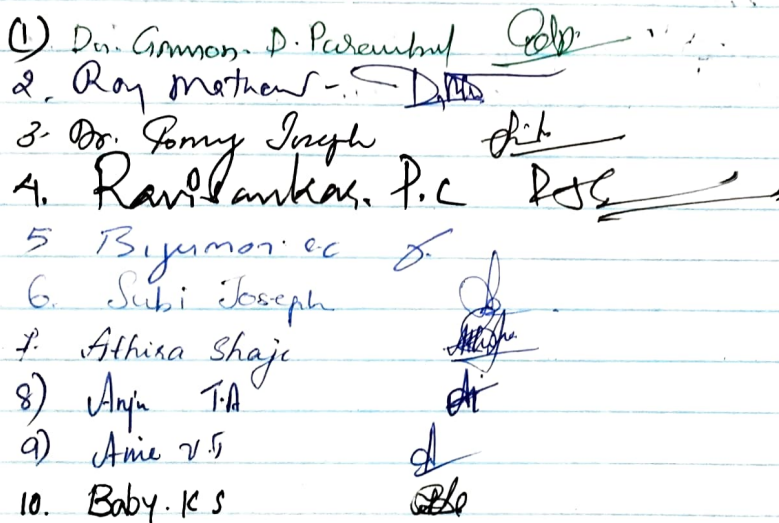 (1) Dr. Gomon. D. Parambul
2. Roy Mathew -
3. Dr. Tomy Joseph
4. Ravisankar. P.C
5 Bijumon. c.c
6. Subi Joseph
7. Athira Shaji
8) Anju T.A
9) Amie V.S
10. Baby. K S